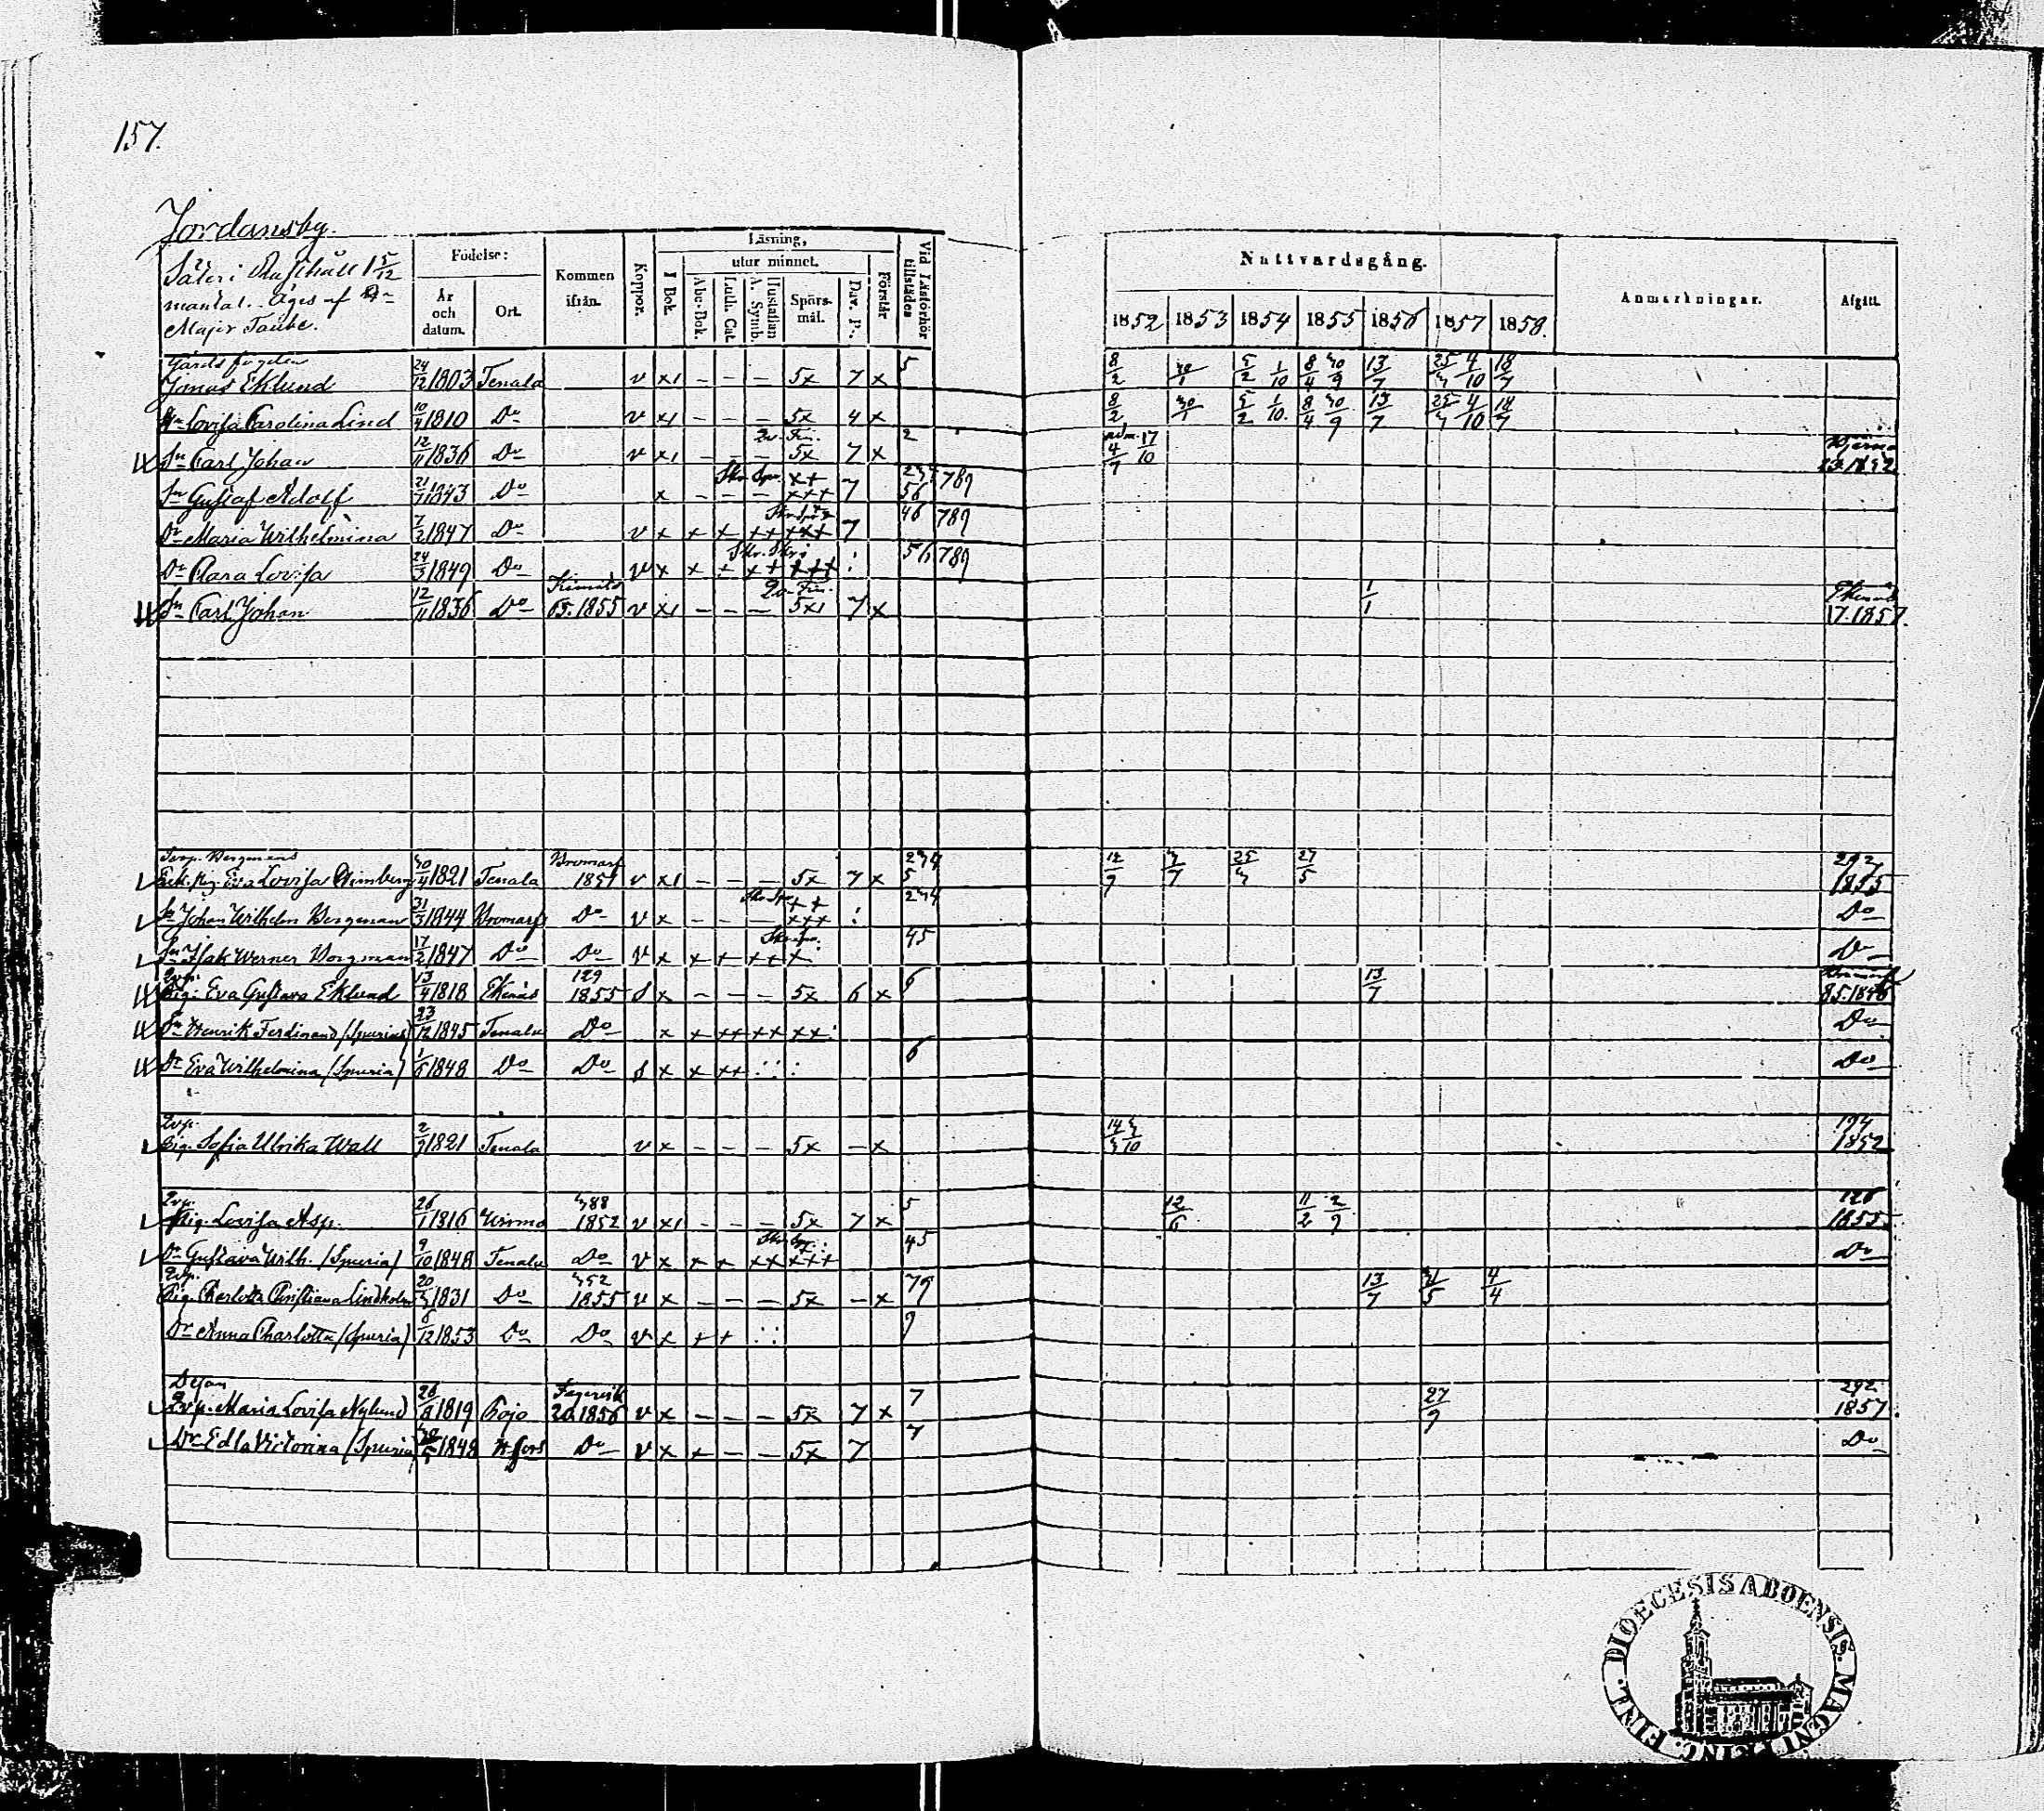 157.
Jordansby.
Säteri Rusthåll 1 5/12
mantal. Äges af
Major Taube.
Födelse:
År och datum.
Ort.
Kommen ifrån.
Koppor.
Läsning,
I Bok.
utur minnet.
Abc-Bok.
Luth. Cat.
Hustaflan A. Symb.
Spörs-mål.
Dav. Ps.
Förstår
Vid Läsförhör tillstädes
Nattvardsgång.
1852 1853 1854 1855 1856 1857 1858.
Anmärkningar.
Afgått.
Gårdsfogden
Jonas Eklund 24/12 1803 Tenala v x1 – – – 5x 7 x 5 8/2 5/2 1/10 13/7 4/10 18/7
Lovisa Carolina Lind 10/4 1810 Do v x1 – – – 5x 4 x 8/2 5/2 1/10 13/7 4/10 18/7
Sn Carl Johan 12/11 1836 Do v x1 – – – 5x 7 x 2 adm. 4/7 17/10
Sn Gustaf Adolf 21/7 1843 Do x – – – xxx 7 56 789
Dr Maria Wilhelmina 7/2 1847 Do v x x x xx xxx 7 46 789
Dr Clara Lovisa 24/3 1849 Do v x x + x+ +++ : 56 789
Sn Carl Johan 12/11 1836 Do Kimito 65.1855 v x1 – – – 5x1 7 x 1/1 Ekenäs 17.1857.
Eva Lovisa 1821 Tenala Bromarf 1851 v x1 – – – 5x 7 x 5 12/9 27/5 292 1855
Sn Johan Wilhelm Bergman 31/3 1844 Bromarf Do v x – – – xxx : 234 Do
Sn Isak Werner Bergman 17/2 1847 Do Do v x x + ++ x 45 Do
Pig. Eva Gustava Eklund 13/4 1818 Ekenäs 129 1855 x – – – 5x 6 x 6 13/7 Bromarf
Sn Henrik Ferdinand (Spurius) 23/12 1845 Tenala Do x x ++ ++ xx Do
Dr Eva Wilhelmina (Spuria) 1/6 1848 Do Do x x ++ : : : 6 Do
Pig. Sofia Ulrika Wall 2/9 1821 Tenala v x – – – 5x – x 194 1852
Pig. Lovisa Asp. 26/1 1816 388 1852 v x1 – – – 5x 7 x 5 12/6 11/2 2/9 126 1855
Dr Gustava Wilh. (Spuria) 9/10 1848 Tenala Do v x x x xx xxx 45 Do
Pig. Charlotta Christiana Lindholm 20/3 1831 Do 352 1855 v x – – – 5x – x 79 13/7 4/4
Dr Anna Charlotta (Spuria) 6/12 1853 Do Do v x + + : : 9
Dejan
Maria Lovisa Nylund 26/8 1819 Pojo Fagervik 20.1856 v x – – – 5x 7 x 7 27/9 292 1857.
Dr Edla Victorina (Spuria) 1848 H.fors Do v x x – – 5x 7 7 Do
DIOECESIS ABOENSIS. MAGNI PRINC. FINL.